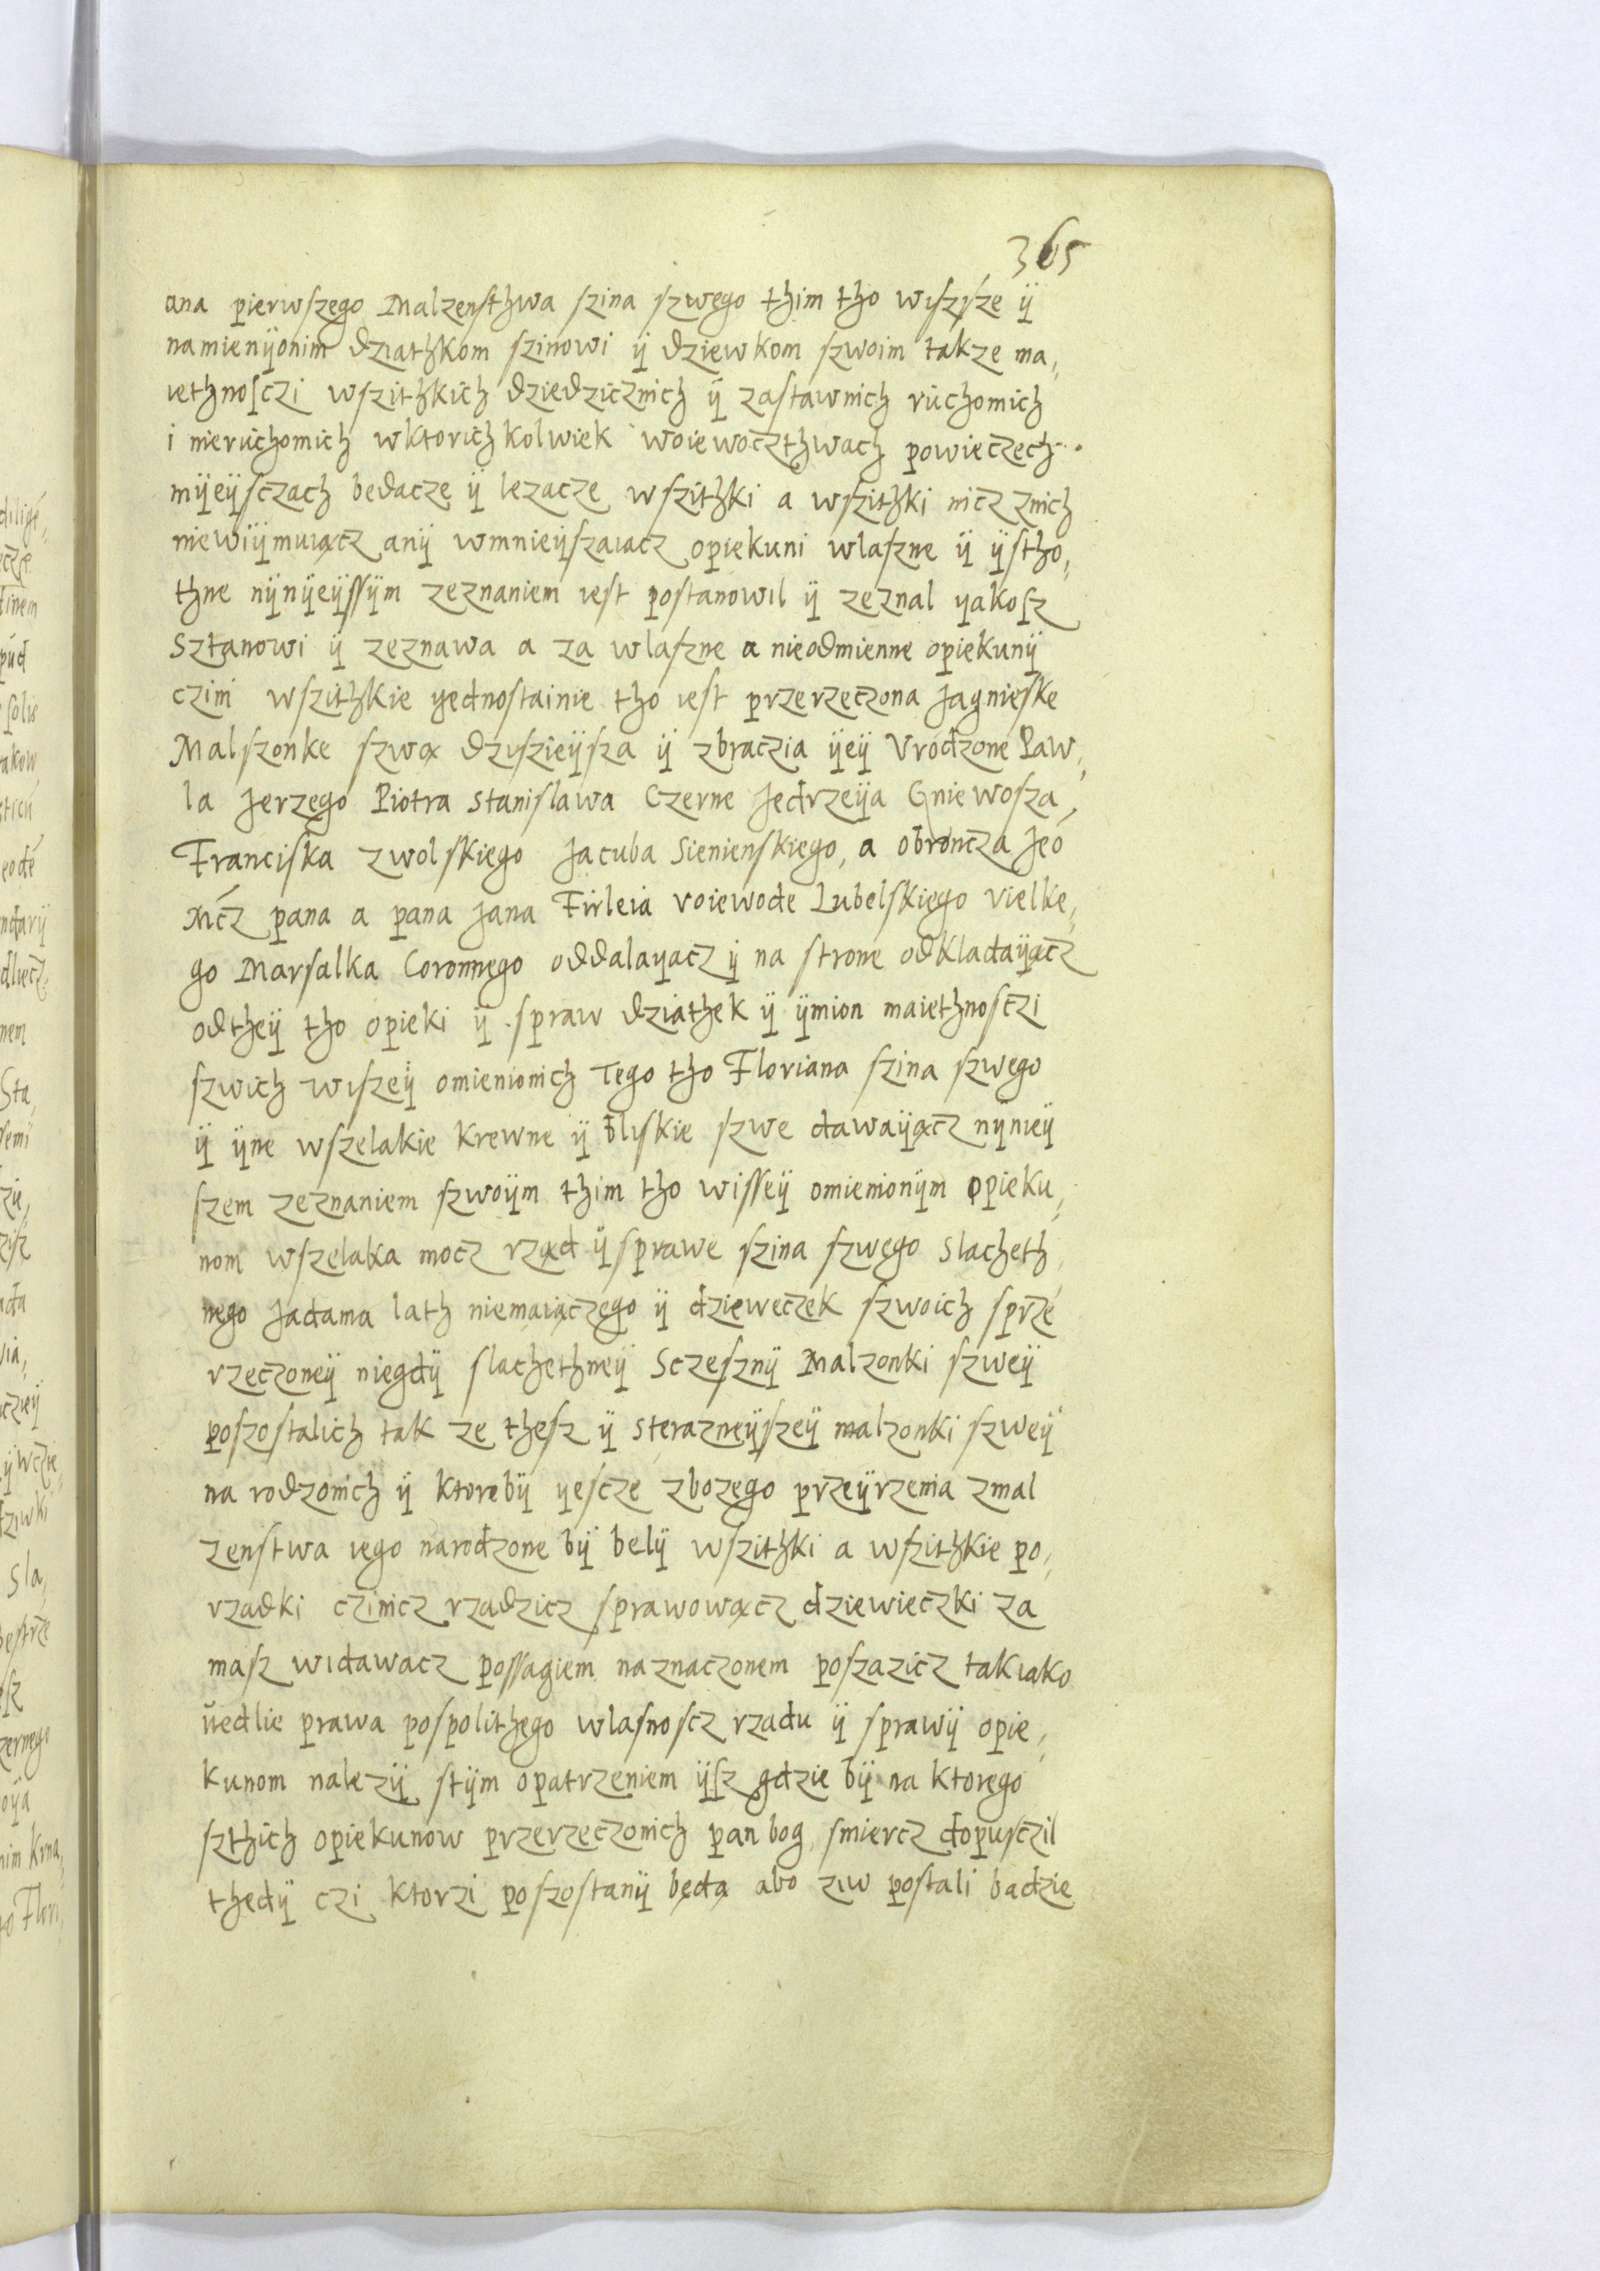 365
ana pierwszego Malzensthwa szina szwego thim tho wiszsze ÿ
namienÿonim dziathkom szinowi ÿ dziewkom szwoim takze ma,
iethnosczi wszithkich dziedzicznich ÿ zastawnich ruchomich
i nieruchomich wktorichkolwiek woiewocztwach powieczech
mÿeÿsczach bedacze ÿ lezacze wszithki a wszithki nicz znich
niewiÿmuiącz anÿ wmnieÿszaiacz opiekuni wlaszne ÿ ÿstho,
thne nÿnÿeÿssÿm zeznaniem iest postanowil ÿ zeznal yakosz
Sztanowi ÿ zeznawa a za wlaszne a nieodmienne opiekunÿ
czini wszithkie yednostainie tho iest przerzeczona Jagnieske
Malszonke szwą dziszieÿsza ÿ zbraczia ÿeÿ Vrodzone Paw,
la Jerzego Piotra Stanislawa Czerne Jedrzeÿa Gniewosza
Franciska zwolskiego Jacuba Sienienskiego, a obroncza Jeo
Mcz pana a pana Jana Firleia voiewode Lubelskiego vielke,
go Marsalka Coronnego oddalayacz ÿ na strone odkladaÿącz
odtheÿ tho opieki ÿ spraw dziathek ÿ ÿmion maiethnosczi
szwich wiszeÿ omienionich Tego tho Floriana szina szwego
ÿ ÿne wszelakie krewne ÿ bliskie szwe dawaÿącz nÿnieÿ
szem zeznaniem szwoÿm thim tho wisseÿ omienionÿm opieku,
nom wszelaka mocz rząd ÿ sprawe szina szwego Slacheth,
nego Jadama lath niemaiączego ÿ dzieweczek szwoich sprze
rzeczoneÿ niegdÿ slachethneÿ Sczesznÿ Malzonki szweÿ
poszostalich tak ze thesz ÿ sterazneÿszeÿ malzonki szweÿ
na rodzonich ÿ ktorebÿ yescze zbozego przeÿrzenia zmal
zenstwa iego narodzone bÿ belÿ wszithki a wszithkie po,
rzadki czinicz rzadzicz sprawowącz dziewieczki za
masz widawacz possagiem naznaczonem poszazicz takiako
vedlie prawa pospolithego wlasnoscz rzadu ÿ sprawÿ opie,
kunom nalezÿ stÿm opatrzeniem ÿsz gdzie bÿ na ktorego
szthich opiekunow przerzeczonich pan bog smiercz dopusczil
thedÿ czi ktorzi poszostanÿ będą abo ziw postali badzie